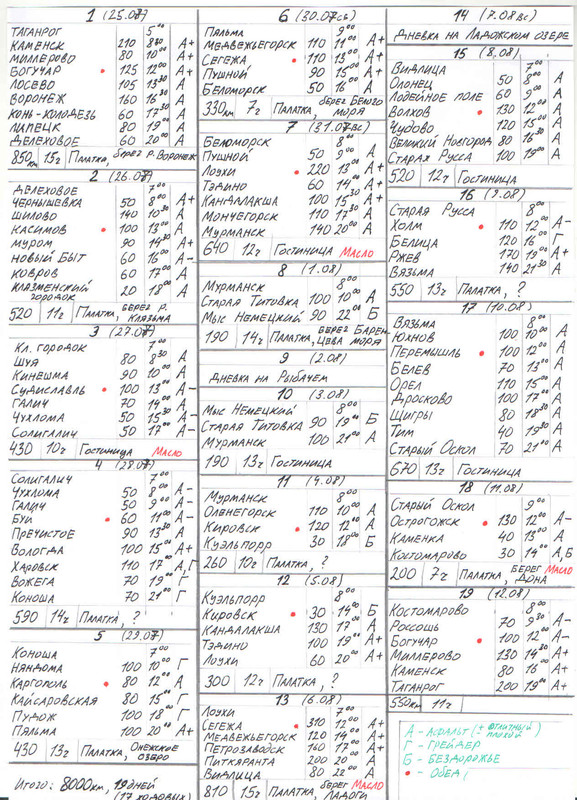 1 (25.07)
ТАГАНРОГ 5⁰⁰
КАМЕНСК 210 8³⁰ А+
МИЛЛЕРОВО 80 10⁰⁰ А+
БОГУЧАР • 125 12⁰⁰ А+
ЛОСЕВО 105 13³⁰ А
ВОРОНЕЖ 160 16³⁰ А
КОНЬ-КОЛОДЕЗЬ 60 17³⁰ А
ЛИПЕЦК 80 19⁰⁰ А
ДЕЛЕХОВОЕ 60 20⁰⁰ А
850км 15ч ПАЛАТКА, БЕРЕГ Р. ВОРОНЕЖ
2 (26.07)
ДЕЛЕХОВОЕ 7⁰⁰
ЧЕРНЫШЕВКА 50 8⁰⁰ А+
ШИЛОВО 140 10³⁰ А
КАСИМОВ • 100 13⁰⁰ А
МУРОМ 90 14³⁰ А+
НОВЫЙ БЫТ 60 16⁰⁰ А-
КОВРОВ 60 17⁰⁰ А
КЛЯЗМЕНСКИЙ ГОРОДОК 20 18⁰⁰ А
520 11ч ПАЛАТКА, БЕРЕГ Р. КЛЯЗЬМА
3 (27.07)
КЛ. ГОРОДОК 7⁰⁰
ШУЯ 80 8³⁰ А
КИНЕШМА 90 10⁰⁰ А
СУДИСЛАВЛЬ • 100 13⁰⁰ А-
ГАЛИЧ 70 14⁰⁰ А
ЧУХЛОМА 50 15³⁰ А-
СОЛИГАЛИЧ 50 17⁰⁰ А-
430 10ч ГОСТИНИЦА МАСЛО
4 (28.07)
СОЛИГАЛИЧ 7⁰⁰
ЧУХЛОМА 50 8⁰⁰ А-
ГАЛИЧ 50 9⁰⁰ А-
БУЙ • 60 11⁰⁰ А-
ПРЕЧИСТОЕ 90 13³⁰ А
ВОЛОГДА 100 15⁰⁰ А+
ХАРОВСК 110 17⁰⁰ А,Г
ВОЖЕГА 70 19⁰⁰ Г
КОНОША 70 21⁰⁰ Г
590 14ч ПАЛАТКА, ?
5 (29.07)
КОНОША 7⁰⁰
НЯНДОМА 100 10⁰⁰ Г
КАРГОПОЛЬ • 80 12⁰⁰ А
КАЙСАРОВСКАЯ 80 15⁰⁰ Г
ПУДОЖ 100 18⁰⁰ Г
ПЯЛЬМА 100 20⁰⁰ А+
430 13ч ПАЛАТКА, ОНЕЖСКОЕ ОЗЕРО
ИТОГО: 8000км, 19 ДНЕЙ
(17 ХОДОВЫХ)
6 (30.07сб)
ПЯЛЬМА 9⁰⁰
МЕДВЕЖЬЕГОРСК 110 11⁰⁰ А+
СЕГЕЖА • 110 13⁰⁰ А+
ПУШНОЙ 90 15⁰⁰ А+
БЕЛОМОРСК 50 16⁰⁰ А
330км 7ч ПАЛАТКА, БЕРЕГ БЕЛОГО МОРЯ
7 (31.07вс)
БЕЛОМОРСК 8⁰⁰
ПУШНОЙ 50 9⁰⁰ А
ЛОУХИ • 220 13⁰⁰ А+
ТЭДИНО 60 14⁰⁰ А+
КАНДАЛАКША 100 15³⁰ А+
МОНЧЕГОРСК 110 17³⁰ А
МУРМАНСК 140 20⁰⁰ А
640 12ч ГОСТИНИЦА МАСЛО
8 (1.08)
МУРМАНСК 8⁰⁰
СТАРАЯ ТИТОВКА 100 10⁰⁰ А
МЫС НЕМЕЦКИЙ 90 22⁰⁰ Б
190 14ч ПАЛАТКА, БЕРЕГ БАРЕНЦЕВА МОРЯ
9 (2.08)
ДНЕВКА НА РЫБАЧЕМ
10 (3.08)
МЫС НЕМЕЦКИЙ 8⁰⁰
СТАРАЯ ТИТОВКА 90 19⁰⁰ Б
МУРМАНСК 100 21⁰⁰ А
190 13ч ГОСТИНИЦА
11 (4.08)
МУРМАНСК 8⁰⁰
ОЛЕНЕГОРСК 110 10⁰⁰ А
КИРОВСК • 120 12⁰⁰ А
КУЭЛЬПОРР 30 18⁰⁰ Б
260 10ч ПАЛАТКА, ?
12 (5.08)
КУЭЛЬПОРР 8⁰⁰
КИРОВСК • 30 14⁰⁰ Б
КАНДАЛАКША 130 17⁰⁰ А
ТЭДИНО 100 19⁰⁰ А+
ЛОУХИ 60 20⁰⁰ А+
300 12ч ПАЛАТКА, ?
13 (6.08)
ЛОУХИ 7⁰⁰
СЕГЕЖА • 310 12⁰⁰ А+
МЕДВЕЖЬЕГОРСК 120 14⁰⁰ А+
ПЕТРОЗАВОДСК 160 17⁰⁰ А+
ПИТКЯРАНТА 200 20⁰⁰ А
ВИДЛИЦА 80 22⁰⁰ А
810 15ч ПАЛАТКА, БЕРЕГ ЛАДОГИ МАСЛО
14 (7.08вс)
ДНЕВКА НА ЛАДОЖСКОМ ОЗЕРЕ
15 (8.08)
ВИДЛИЦА 7⁰⁰
ОЛОНЕЦ 50 8⁰⁰ А
ЛОДЕЙНОЕ ПОЛЕ 60 9⁰⁰ А
ВОЛХОВ • 130 12⁰⁰ А
ЧУДОВО 120 15⁰⁰ А
ВЕЛИКИЙ НОВГОРОД 80 16³⁰ А
СТАРАЯ РУССА 100 19⁰⁰ А
520 12ч ГОСТИНИЦА
16 (9.08)
СТАРАЯ РУССА 8⁰⁰
ХОЛМ • 110 12⁰⁰ А-
БЕЛИЦА 120 16⁰⁰ Г
РЖЕВ 170 19⁰⁰ А+
ВЯЗЬМА 140 21³⁰ А
550 13ч ПАЛАТКА, ?
17 (10.08)
ВЯЗЬМА 8⁰⁰
ЮХНОВ 100 10⁰⁰ А
ПЕРЕМЫШЛЬ • 100 12⁰⁰ А
БЕЛЕВ 70 13⁰⁰ А
ОРЕЛ 110 15⁰⁰ А
ДРОСКОВО 100 17⁰⁰ А
ЩИГРЫ 80 18³⁰ А
ТИМ 40 19³⁰ А
СТАРЫЙ ОСКОЛ 70 21⁰⁰ А
670 13ч ГОСТИНИЦА
18 (11.08)
СТАРЫЙ ОСКОЛ 9⁰⁰
ОСТРОГОЖСК • 130 12⁰⁰ А-
КАМЕНКА 40 13⁰⁰ А
КОСТОМАРОВО 30 14⁰⁰ А,Б
200 7ч ПАЛАТКА, БЕРЕГ ДОНА МАСЛО
19 (12.08)
КОСТОМАРОВО 8⁰⁰
РОССОШЬ 70 9³⁰ А-
БОГУЧАР • 100 12⁰⁰ А-
МИЛЛЕРОВО 130 14³⁰ А+
КАМЕНСК 80 16⁰⁰ А+
ТАГАНРОГ 200 19⁰⁰ А+
550км 11ч
А - АСФАЛЬТ (+ ОТЛИЧНЫЙ - ПЛОХОЙ)
Г - ГРЕЙДЕР
Б - БЕЗДОРОЖЬЕ
• - ОБЕД